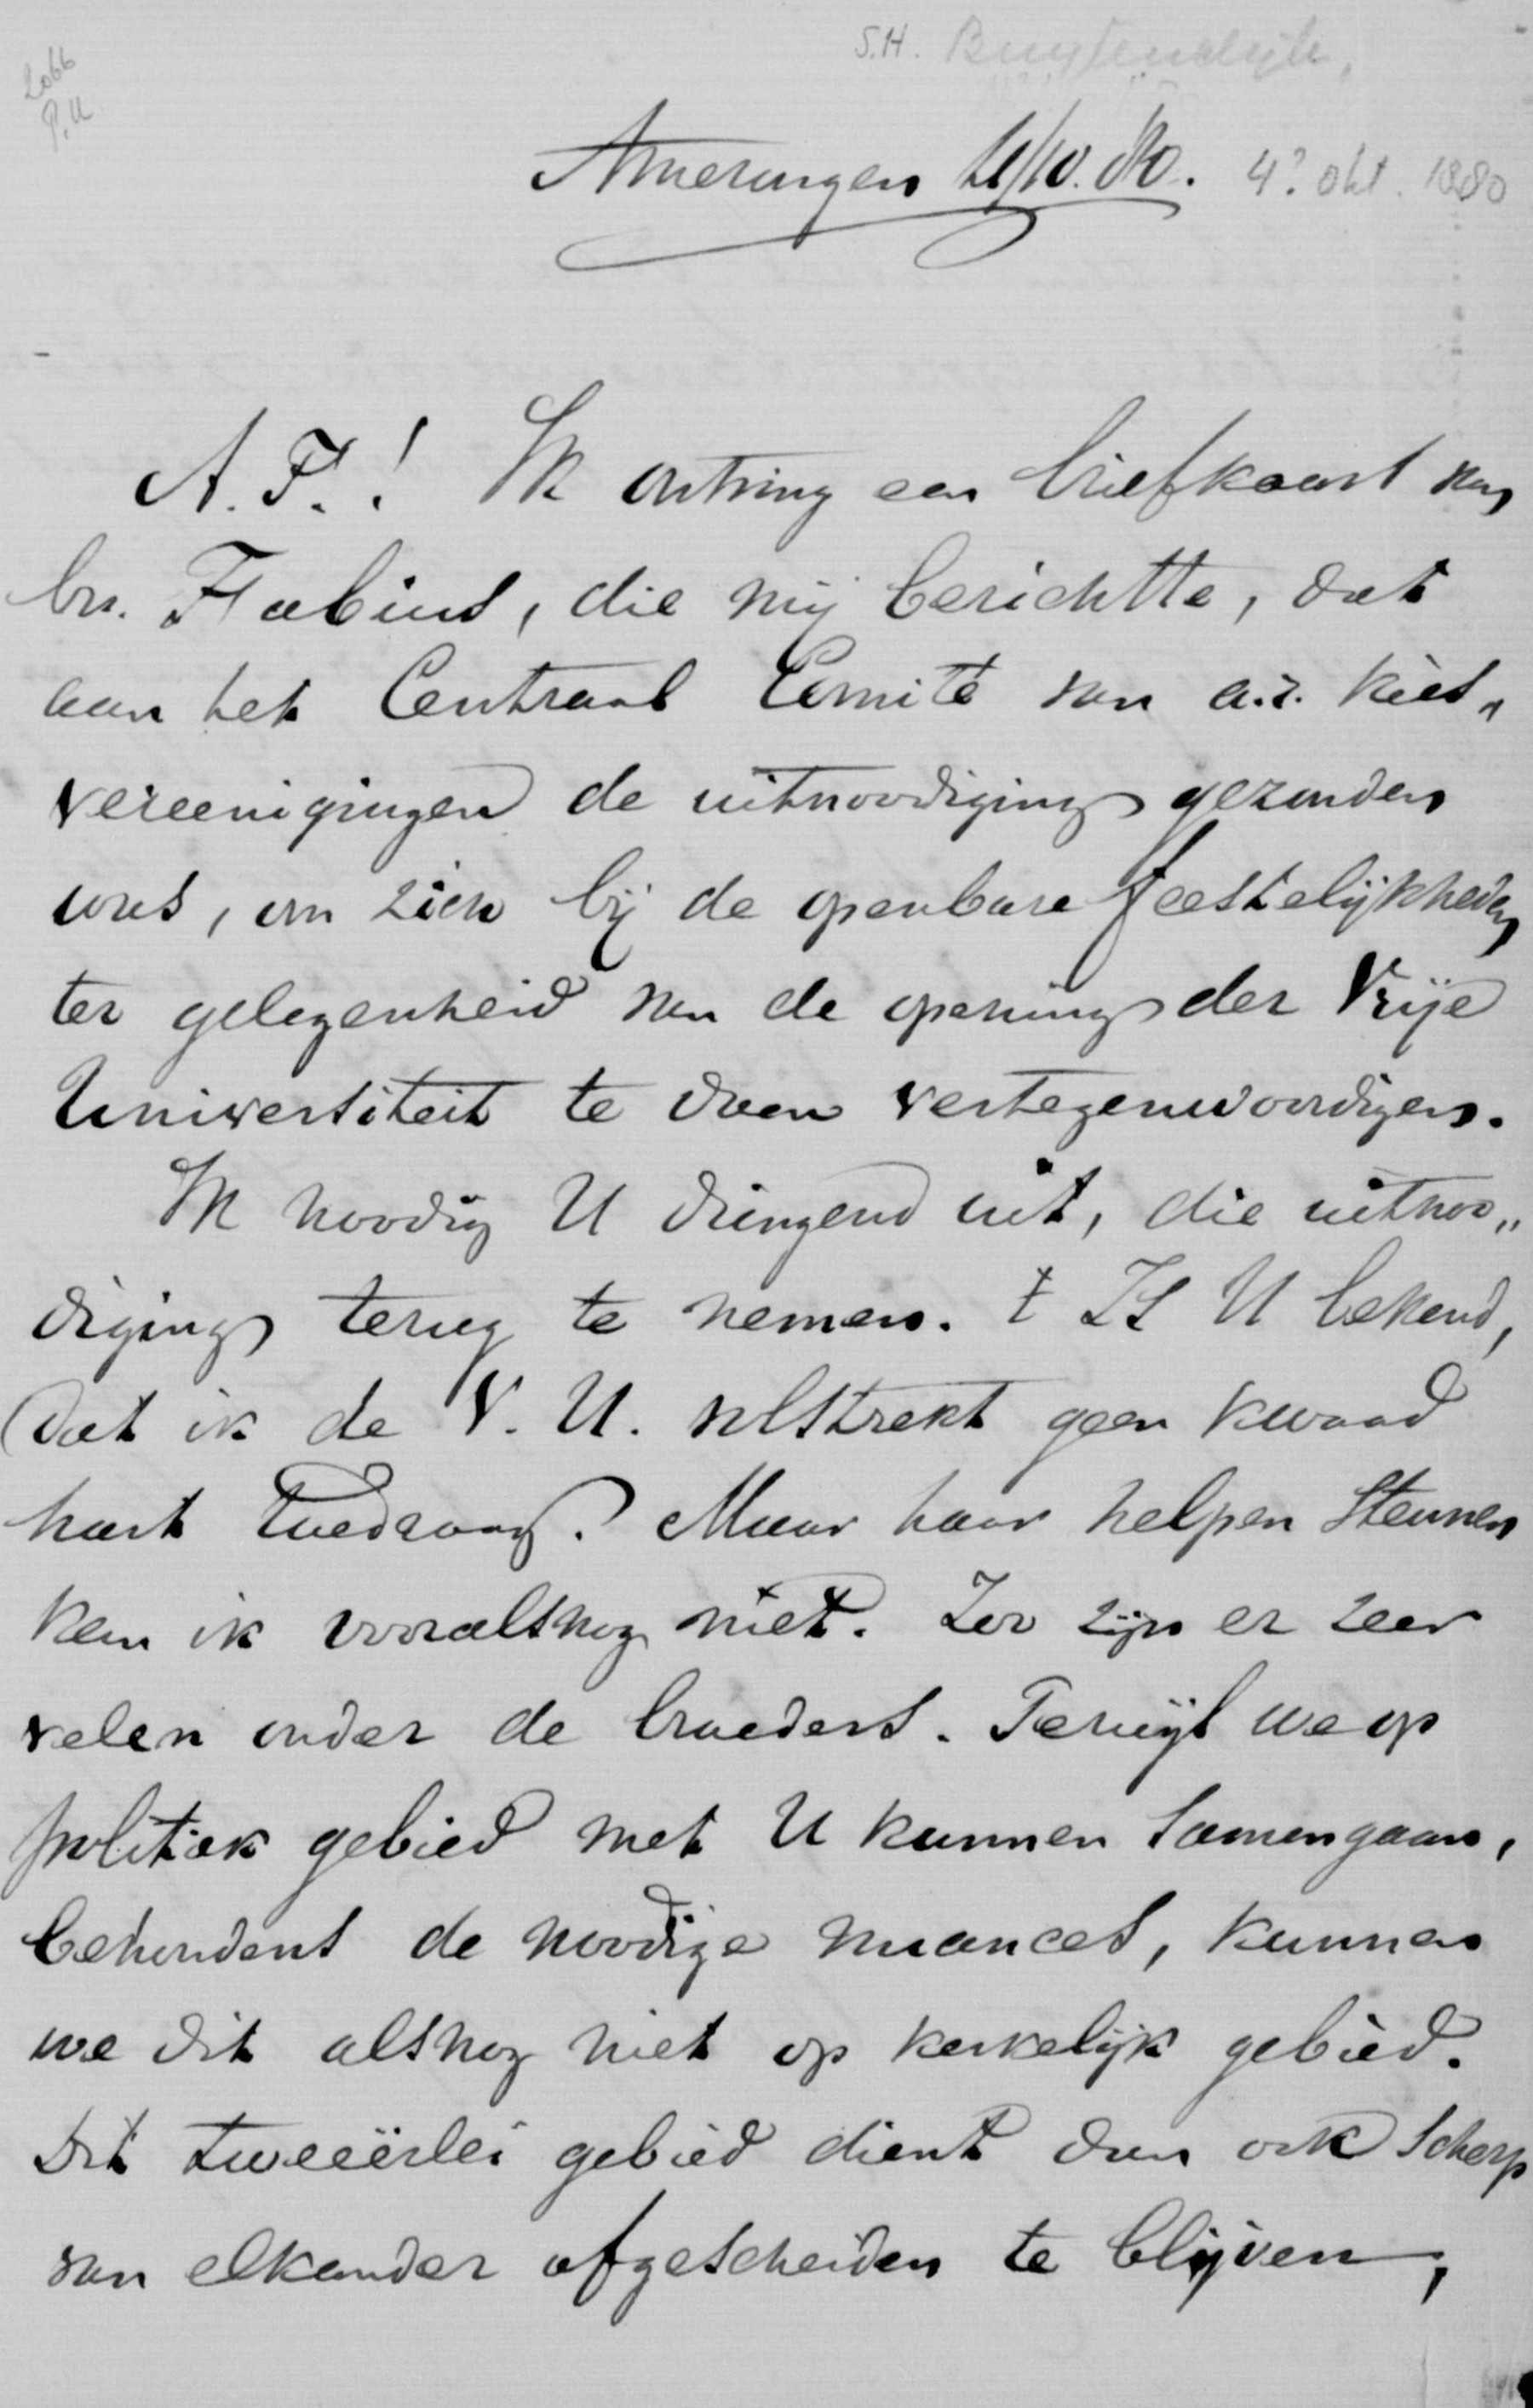 S.H. Buytendijk,
2066
P.U
Amerongen 4/10.80. 4? okt. 1880
A. F.! Ik ontving een briefkaart van
br. Fabius, die mij berichtte, dat
aan het Centraal Comité van a.r. kies„
vereenigingen de uitnoodiging gezonden
was, om zich bij de openbare feestelijkheden
ter gelegenheid van de opening der Vrije
Universiteit te doen vertegenwoordigen.
Ik noodig U dringend uit, die uitnoo„
diging terug te nemen. t Is U bekend,
dat ik de V. U. volstrekt geen kwaad
hart toedraag. Maar haar helpen steunen
kan ik vooralsnog niet. Zoo zijn er zeer
velen onder de broeders. Terwijl we op
politiek gebied met U kunnen samengaan,
behoudens de noodige nuances, kunnen
we dit alsnog niet op kerkelijk gebied.
Dit tweeërlei gebied dient dan ook scherp
van elkander afgescheiden te blijven,